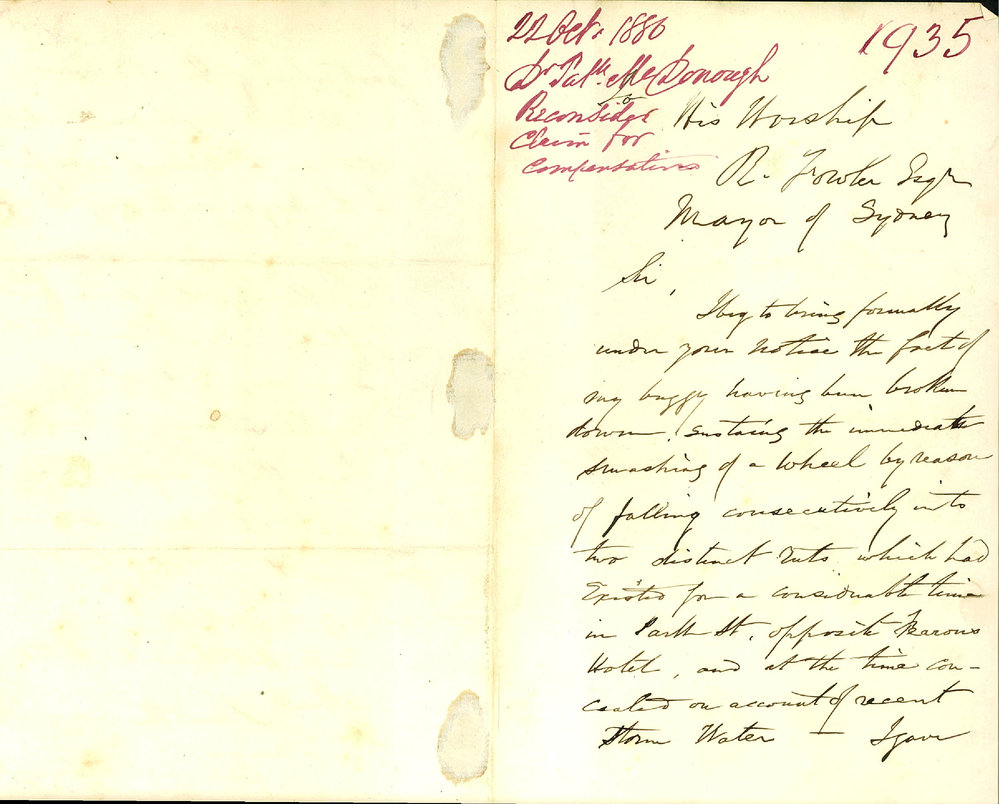 22 Oct. 1880
1935
Dr Patk. McDonough
Reconsider
Claim for
compensation
To
His Worship
R. Fowler Esqr
Mayor of Sydney
Sir,
I beg to bring formally
under your notice the fact of
my buggy having been broken
down, sustaing the immediate
smashing of a wheel by reason
of falling consecutively into
two distinct ruts which had
Existed for a considerable time
in Park St. opposite
Hotel, and at the time con-
cealed on account of recent
Storm Water — I gave